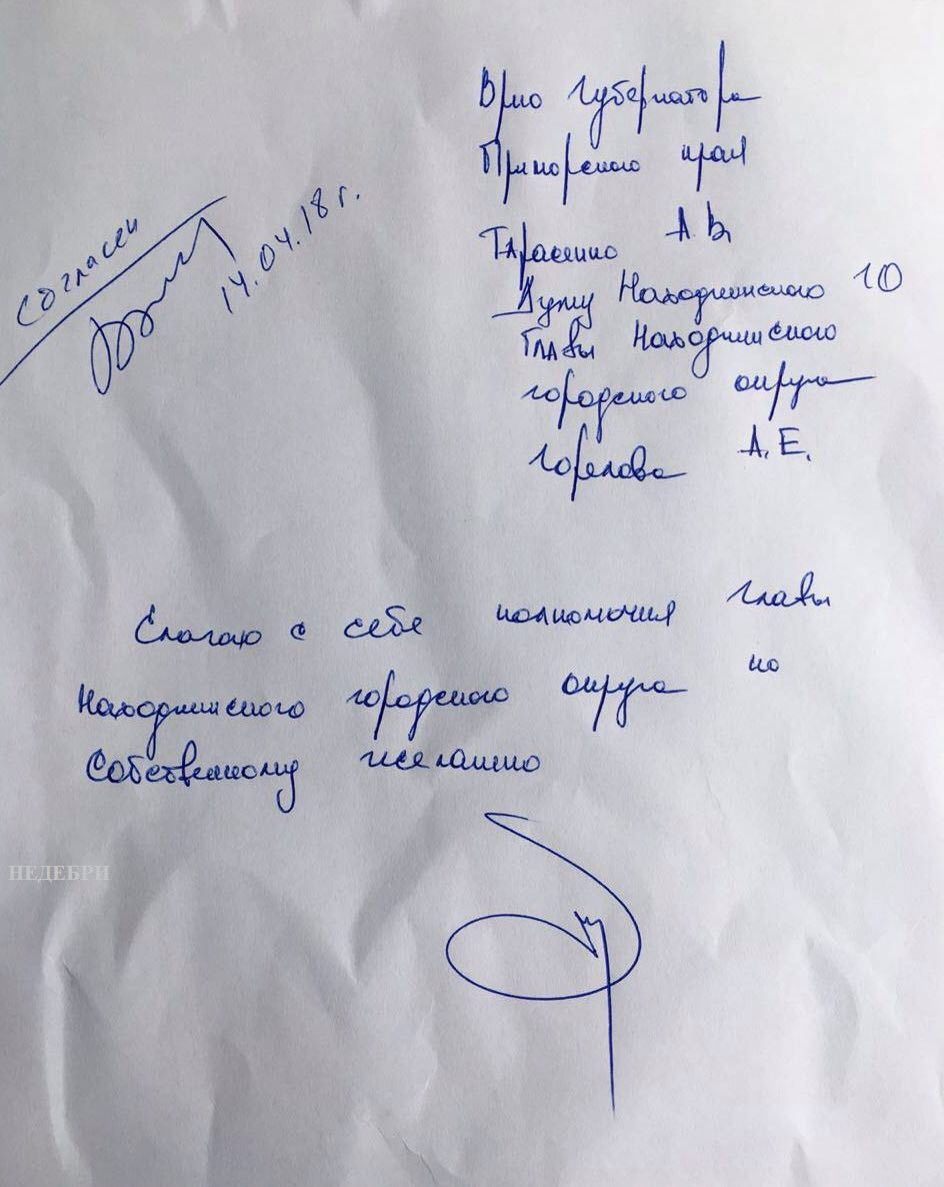 Врио Губернатора
Приморского края
Тарасенко А.В.
Думу Находкинского ГО
Главы Находкинского
городского округа
Горелова А.Е.
Согласен
14.04.18 г.
Слагаю с себе полномочия главы
Находкинского городского округа по
Собственному желанию
НЕДЕБРИ